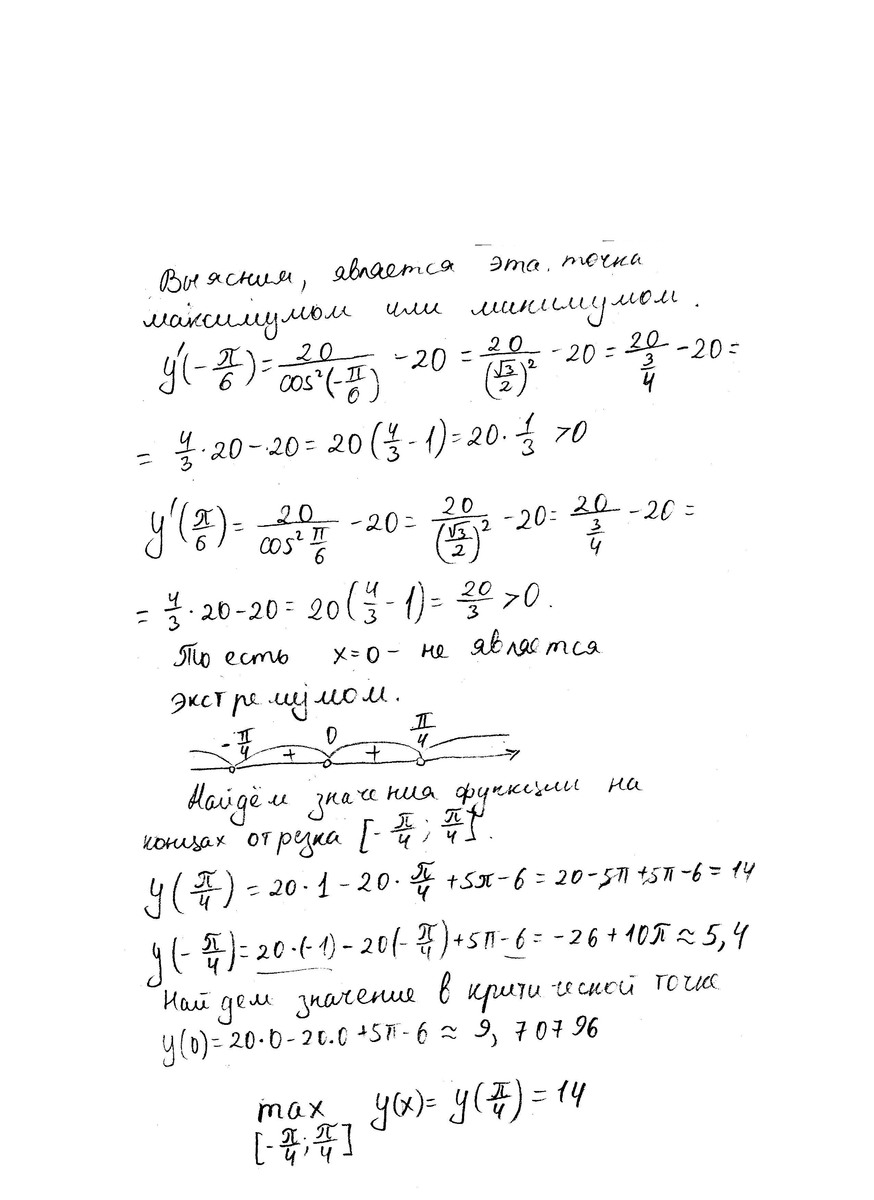 Выясним, является эта точка
максимумом или минимумом.
y'(-π/6) = 20/cos²(-π/6) - 20 = 20/(√3/2)² - 20 = 20/(3/4) - 20 =
= 4/3 · 20 - 20 = 20(4/3 - 1) = 20 · 1/3 >0
y'(π/6) = 20/cos² π/6 - 20 = 20/(√3/2)² - 20 = 20/(3/4) - 20 =
= 4/3 · 20 - 20 = 20(4/3 - 1) = 20/3 >0.
То есть x=0 - не является
экстремумом.
-π/4 + 0 + π/4
Найдём значения функции на
концах отрезка [-π/4; π/4].
y(π/4) = 20·1 - 20·π/4 + 5π - 6 = 20 - 5π + 5π - 6 = 14
y(-π/4) = 20·(-1) - 20(-π/4) + 5π - 6 = -26 + 10π ≈ 5,4
Найдем значение в критической точке
y(0) = 20·0 - 20·0 + 5π - 6 ≈ 9,70796
max y(x) = y(π/4) = 14
[-π/4; π/4]